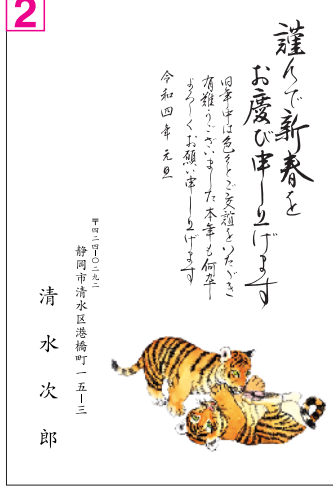 2
謹んで新春を
お慶び申し上げます
旧年中は色々とご交誼をいただき
有難うございました本年も何卒
よろしくお願い申し上げます
令和四年 元旦
〒四二四-〇二九二
静岡市清水区港橋町一五-三
清水次郎